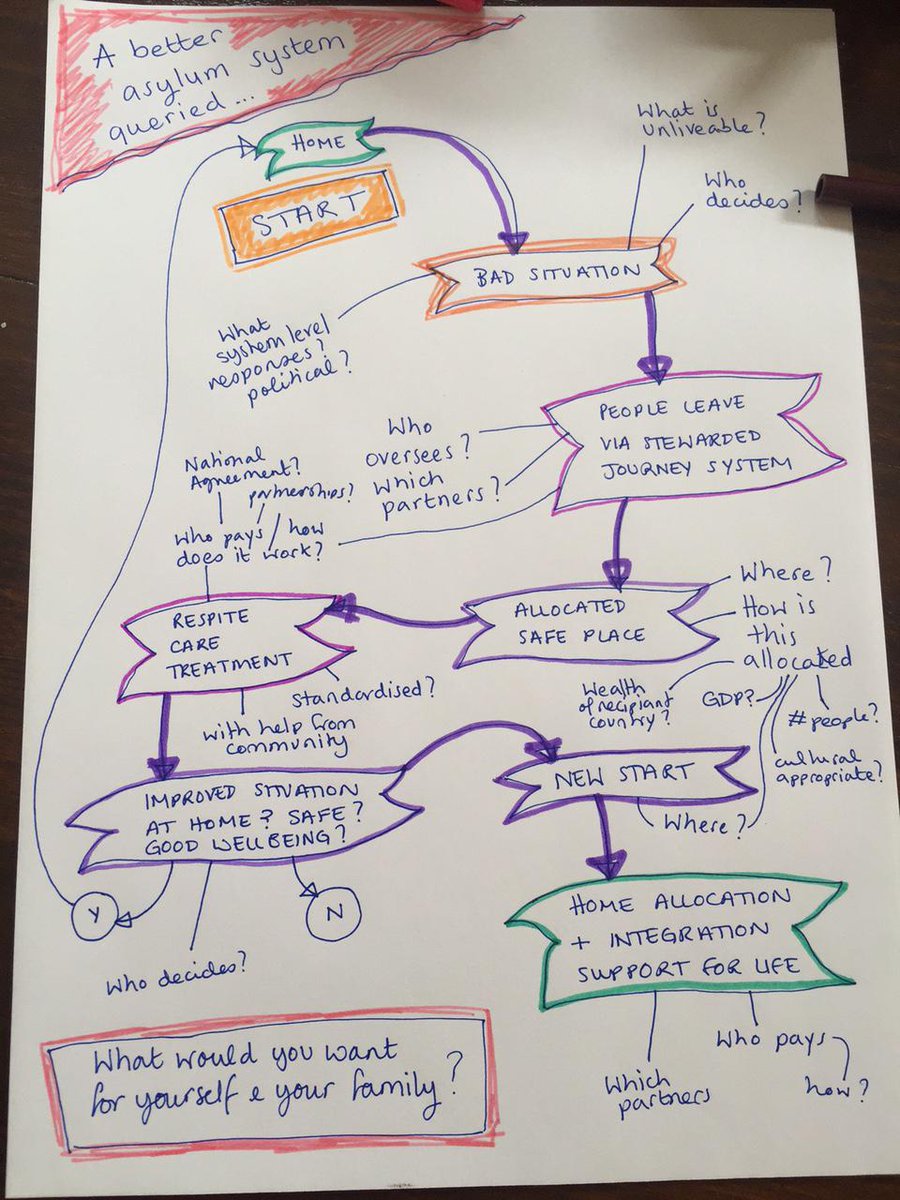 A better
asylum system
queried...
HOME
START
What is
unliveable?
Who
decides?
BAD SITUATION
What
system level
responses?
political?
PEOPLE LEAVE
VIA STEWARDED
JOURNEY SYSTEM
Who
oversees?
which
partners?
National
Agreement?
partnerships?
Who pays / how
does it work?
ALLOCATED
SAFE PLACE
Where?
How is
this
allocated
Wealth
of recipiant
country?
GDP?
#people?
cultural
appropriate?
RESPITE
CARE
TREATMENT
Standardised?
with help from
community
IMPROVED SITUATION
AT HOME? SAFE?
GOOD WELLBEING?
NEW START
Where?
Y
N
Who decides?
HOME ALLOCATION
+ INTEGRATION
SUPPORT FOR LIFE
Which
partners
Who pays
how?
What would you want
for yourself & your family?